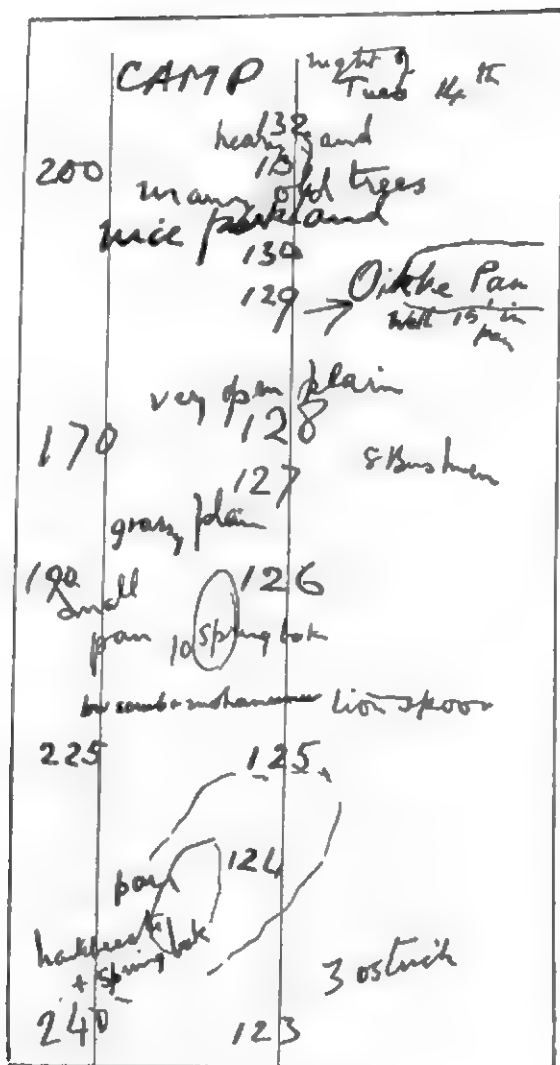 CAMP night of
Tues 14th
132
heavy sand
200 131
many old trees
nice parkland
130
129 → Oikhe Pan
well 15' in
pan
very open plain
128
170
8 Bushmen
127
grassy plain
190 126
small
pan 10 springbok
low scrub + mohanense Lion spoor
225 125
124
pan
hartebeest
+ springbok
3 ostrich
240 123